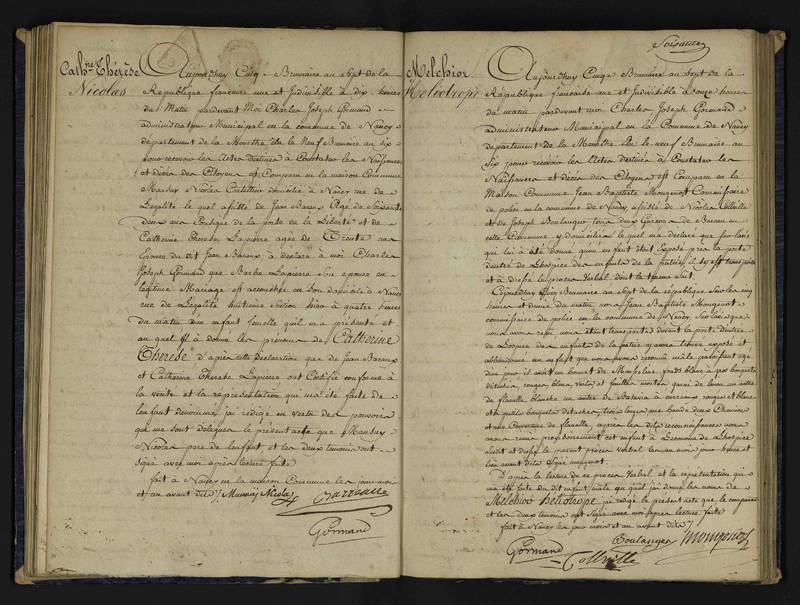 Cath.ne Thérèse
Nicolas
Aujourdhuy Cinq Brumaire an Sept de la
République francaise une et Indivisible à dix heures
du Matin pardevant Moi Charles Joseph Gormand
administrateur Municipal en la commune de Nancy
departement de la Meurthe élu le Neuf Brumaire an six
pour recevoir les Actes destinés à Constater les Naissances
et décès des Citoyens est Comparu en la maison Commune
Mansuy Nicolas domicilié à Nancy rue de
Legalité le quel assisté de Jean Agé de soixante
deux ans de la porte de la Liberté et de
Catherine Therese Lapierre agée de Trente ans
Epouse du dit Jean à déclaré à moi Charles
Joseph Gormand que Barbe Lapierre son epouse en
legitime Mariage est accouchée en son domicile à Nancy
rue de Legalité huitieme section hier à quatre heures
du matin d'un enfant femelle quil m'a présenté
et au quel il a donné les prénoms de Catherine
Therese d'après cette déclaration que de Jean
et Catherine Therese Lapierre ont Certifié conforme à
la verité et la représentation qui m'a été faite de
lenfant denommé jai rédigé en vertu des pouvoirs
qui me sont délégués le présent acte que Mansuy
Nicolas pere de lenfant et les deux temoins ont
signé avec moi apres lecture faite
fait à Nancy en la maison Commune les jour mois
et an avant dits Mansuy Nicolas
Gormand
Soixante
Melchior
Heliotrope
Aujourdhuy Cinq Brumaire an Sept de la
République francaise une et Indivisible à onze heures
du matin pardevant moi Charles Joseph Gormand
administrateur Municipal en la Commune de Nancy
departement de la Meurthe élu le neuf Brumaire an
Six pour recevoir les Actes destinés à Constater les
Naissances et décès des Citoyens est Comparu en la
Maison Commune Jean Baptiste Mougenot Commissaire
de police en la commune de Nancy assisté de Nicolas
et de Joseph Boulanger tous deux Garcons de Bureau en
cette Commune y domiciliés le quel m'a déclaré que sur lavis
qui lui a été donné qu'un enfant étoit exposé près la porte
dentrée de Lhospice des enfants de la patrie, il sy est transporté
et a dressé le procès Verbal dont la teneur suit.
Cejourdhuy Cinq Brumaire an Sept de la république sur les cinq
heures et demie du matin nous Jean Baptiste Mougenot
commissaire de police en la commune de Nancy, sur lavis que
nous avons reçu nous étant transporté devant la porte dentrée
de Lhospice des enfants de la patrie y avons trouvé exposé et
abandonné un enfant que nous avons reconnu mâle paroissant agé
dun jour il avoit un bonnet de Mousseline fonds blanc à gros bouquets
détachés, rouges, bleus, verts, et feuilles mortes
de flanelle blanche un autre de à carreaux rouges et blancs
et à petits bouquets détachés, trois langes une bande deux Chemises
et une Couverture de flanelle, apres les dites reconnoissances nous
avons remis provisoirement cet enfant à Leconome de Lhospice
susdit et dressé le present procès verbal les an mois jour heure et
lieu avant dits Signé mougenot.
D'après la lecture de ce procès Verbal et la réprésentation qui
m'a été faite du dit enfant mâle au quel jai donné les noms de
Melchior héliotrope jai rédigé le présent acte que le comparant
et les deux temoins ont signé avec moi apres lecture faite
fait à Nancy les jour mois et an avant dits
Boulanger mougenot
Gormand